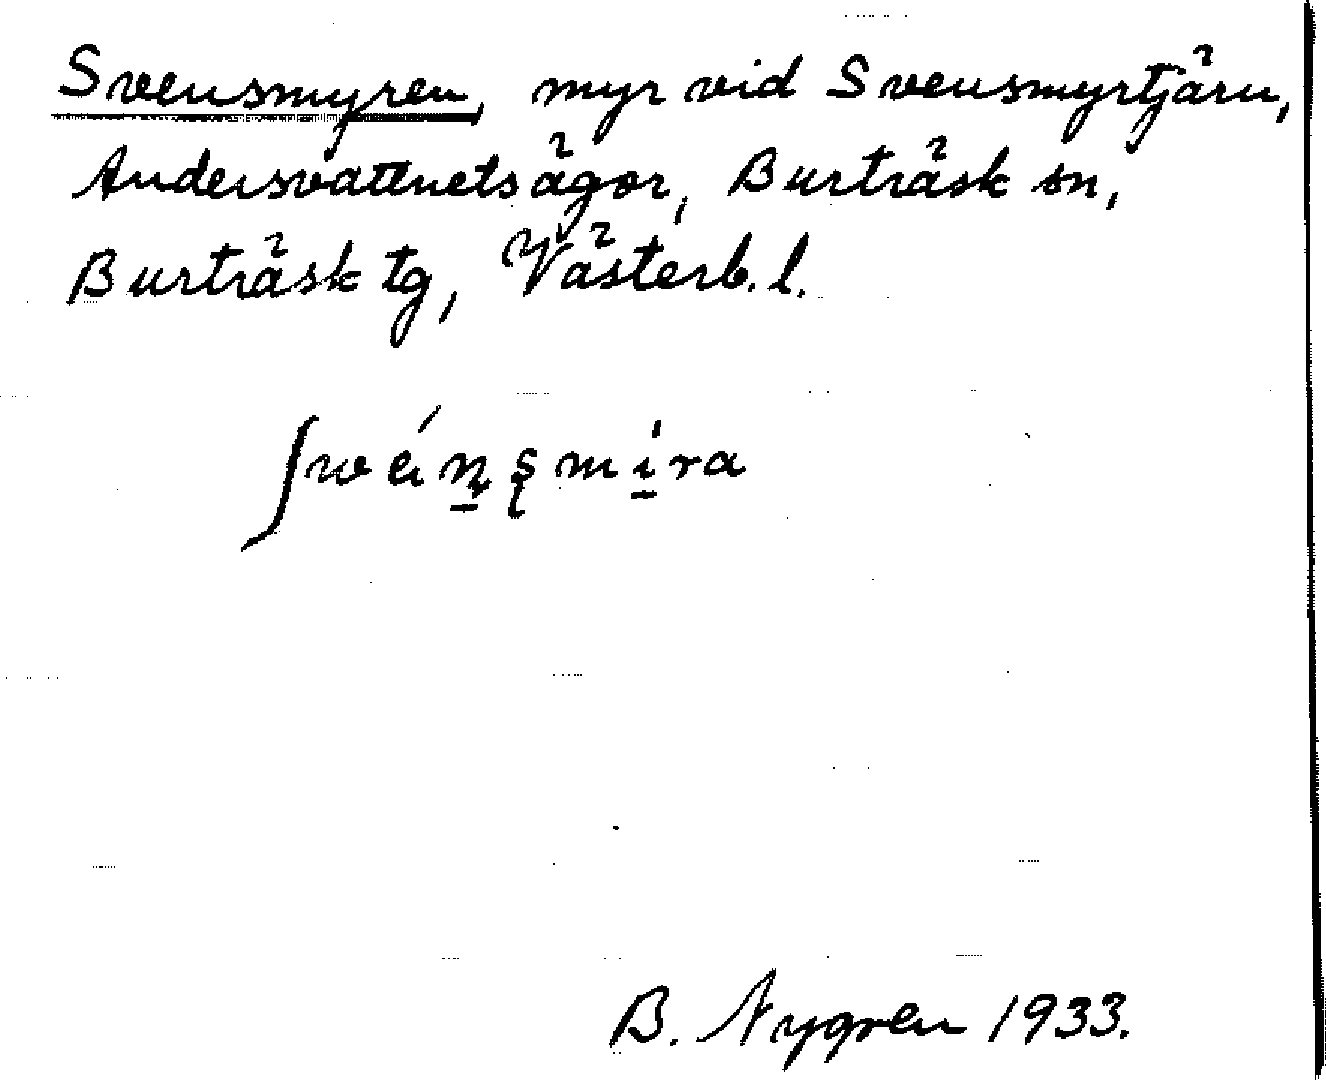 Svensmyren, myr vid Svensmyrtjärn,
Andersvattnets ägor, Burträsk sn,
Burträsk tg, Västerb. l.
B. Nygren 1933.